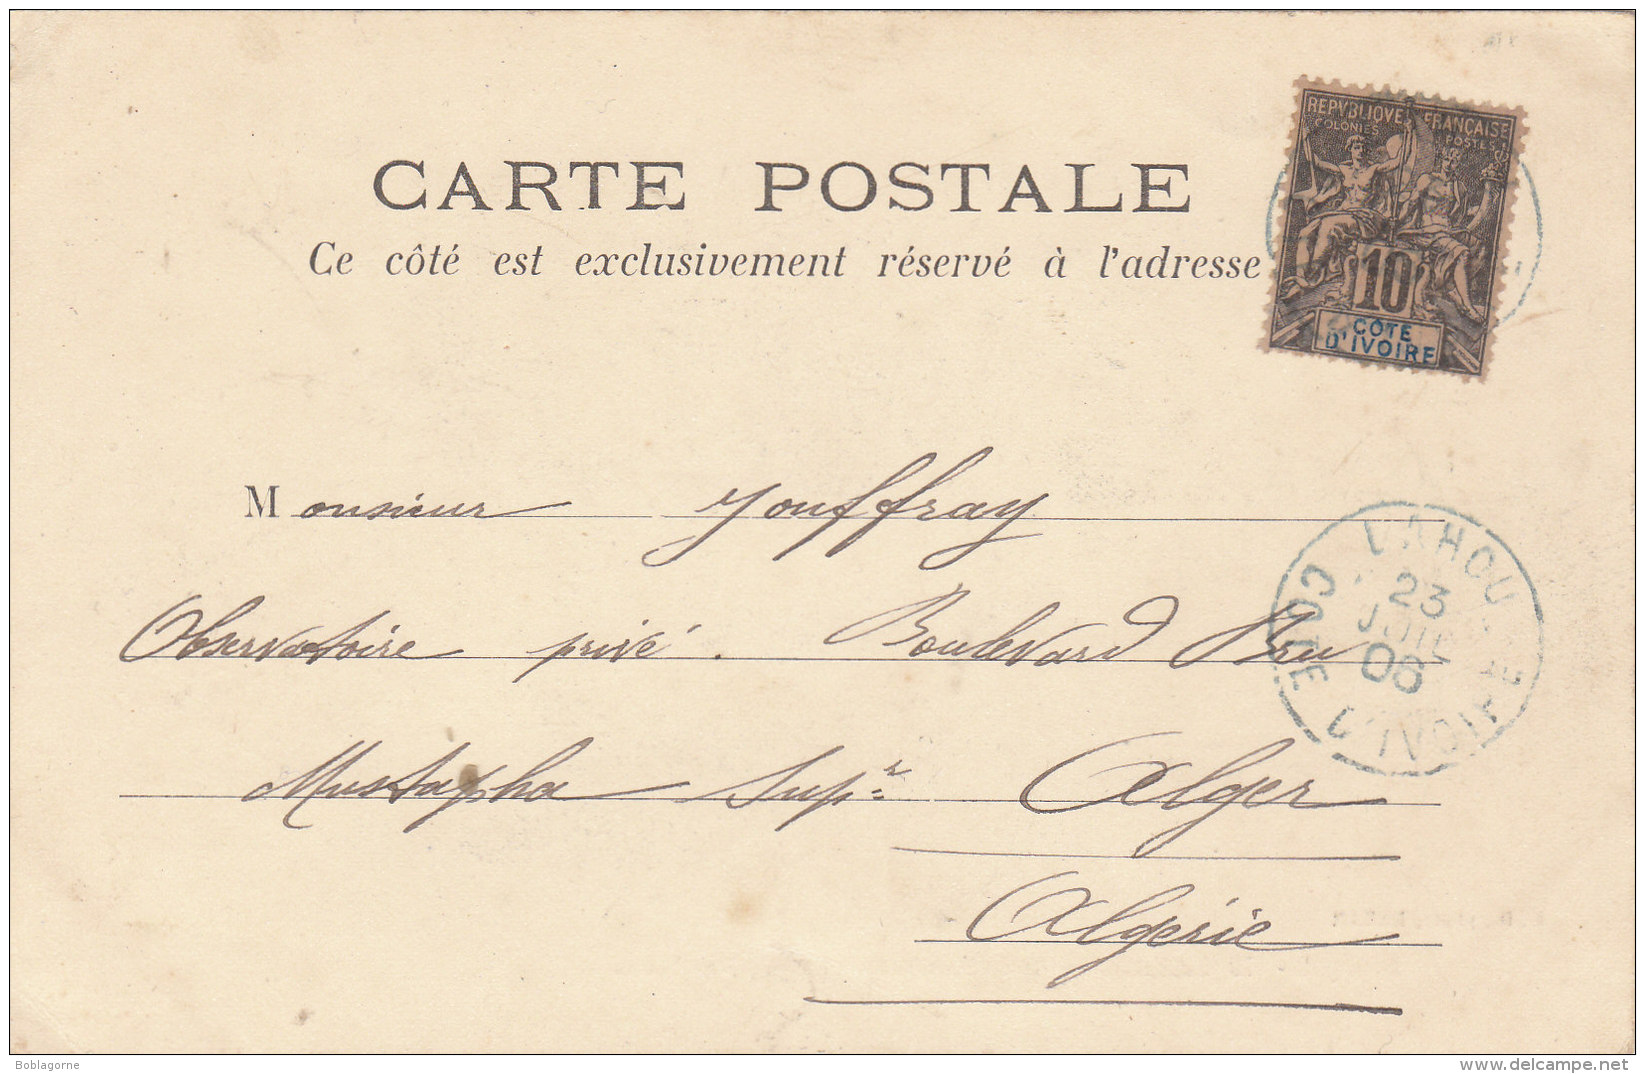 REPVBLIQVE FRANÇAISE
COLONIES POSTES
10
COTE
D'IVOIRE
CARTE POSTALE
Ce côté est exclusivement réservé à l'adresse
Monsieur Jouffray
Observatoire privé. Boulevard Bru
Mustapha Supr Alger
Algérie
LAHOU
23
JUIL
06
COTE D'IVOIRE
Boblagorne
www.delcampe.net